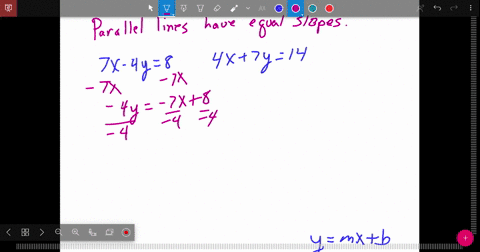 Parallel lines have equal slopes.
7x-4y=8 4x+7y=14
-7x -7x
-4y = -7x+8
-4 -4 -4
y = mx+b